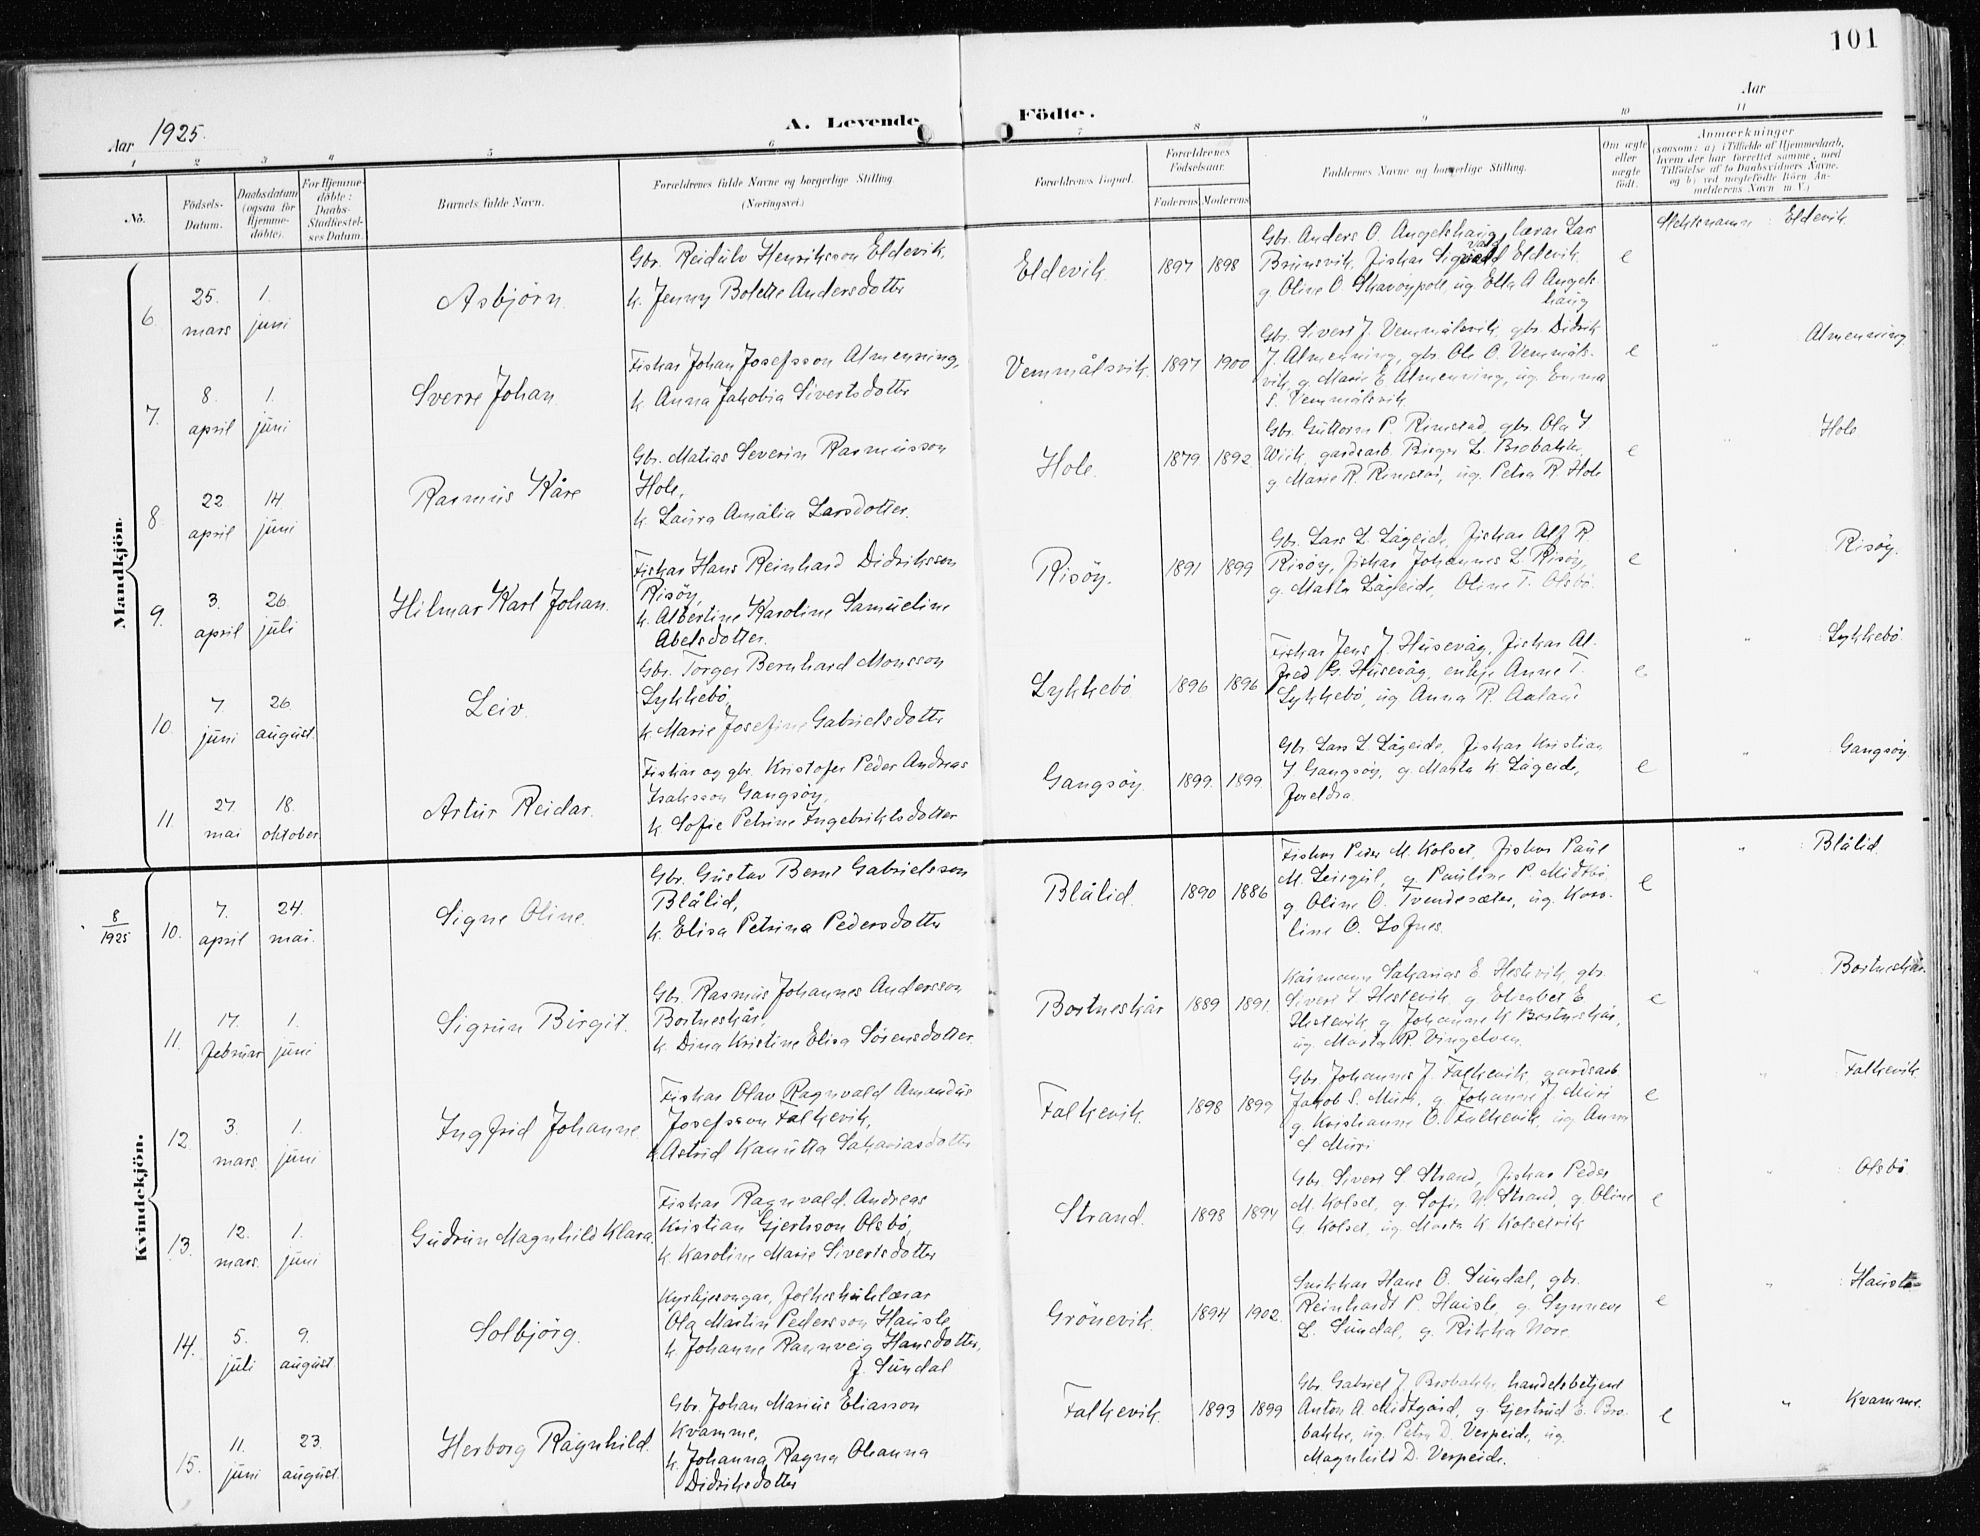 101
Aar 1925.
A. Levende
Födte.
Aar
1 2 3 4 5 6 7 8 9 10 11
No.
Födsels-
Datum.
Daabsdatum
(ogsaa for
Hjemme-
døbte).
For Hjemme-
döbte:
Daabs-
Stadfæstel-
ses Datum.
Barnets fulde Navn.
Forældrenes fulde Navne og borgerlige Stilling.
(Næringsvei.)
Forældrenes Bopæl.
Forældrenes
Födselsaar.
Faderens Moderens
Faddernes Navne og borgerlige Stilling.
Om ægte
eller
uægte
födt.
Anmærkninger
(saasom: a) i Tilfælde af Hjemmedaab,
hvem der har forrettet samme, med
Tilföielse af to Daabsvidners Navne,
og b) ved uægtefödte Börn An-
melderens Navn m. V.)
Mandkjön.
6.
25.
mars
1.
juni
Asbjørn.
Gbr. Reidulv Henriksson Eldevik,
k. Jenny Bolette Andersdotter
Eldevik.
1897 1898
Gbr. Anders O. Angelshaug, lærar Lars
Brunsvik, fiskar Sigvald Eldevik,
g. Oline O. Skavøypoll, ug. Ella A Angels
haug
e
Slektsnamn : Eldevik
7.
8.
april
1.
juni
Sverre Johan.
Fiskar Johan Josefsson Almenning,
k. Anna Jakobia Sivertsdotter
Vemmålsvik.
1897 1900
Gbr. Sivert J. Vemmålsvik gbr. Didrik
J. Almenning, gbr. Ole O. Vemmåls-
vik, g. Marie E. Almenning, ug. Emma
S. Vemmålsvik
e
" Almenning
8.
22
april
14.
juni
Rasmus Kåre
Gbr. Matias Severin Rasmusson
Hole,
k. Laura Amalia Larsdotter.
Hole.
1879 1892
Gbr. Guttorm P. Rimstad, gbr. Ola I
Wiik, gardsarb. Birger L. Brobakke,
g. Marie R. Rimstad, ug. Petra R. Hole
e
" Hole
9.
3.
april
26.
juli
Hilmar Karl Johan.
Fiskar Hans Reinhard Didriksson
Risøy,
k. Albertine Karoline Samueline
Abelsdotter.
Risøy.
1891 1899
Gbr. Lars L. Lågeide, fiskar Alf R.
Risøy, fiskar Johannes L. Risøy,
g. Marta Lågeide, Oline T. Olsbø.
e
" Risøy.
10.
7.
juni
26.
august.
Leiv.
Gbr. Torger Bernhard Monsson
Lykkebø,
k. Marie Josefine Gabrielsdotter
Lykkebø
1896 1896
Fiskar Jens J. Husevåg, fiskar Al-
fred G. Husevåg, enkje Anne T.
Lykkebø, ug Anna R. Aaland
e
" Lykkebø
11.
27
mai
18.
oktober
Artur Reidar.
Fiskar og gbr. Kristofer Peder Andreas
Isaksson Gangsøy,
k. Sofie Petrine Ingebriktsdotter
Gangsøy.
1899. 1899.
Gbr. Lars L. Lågeide, fiskar Kristian
I Gangsøy, g. Marta K. Lågeide,
foreldra
e
" Gangsøy.
Kvindekjön.
8
1925
10.
7.
april
24.
mai.
Signe Oline.
Gbr. Gustav Bernt Gabrielsson
Blålid,
k. Elisa Petrina Pedersdotter
Blålid.
1890 1886
Fiskar Peder M. Kolset, fiskar Paul
M. Leirgul, g. Pauline P. Midtbø,
g Oline O. Tvendesæter, ug. Karo-
line O. Lofnes.
e
" : Blålid.
11.
17.
februar
1.
juni
Sigrun Birgit.
Gbr. Rasmus Johannes Andersson
Bortneskår,
k. Dina Kristine Elisa Sørensdotter.
Bortneskår
1889 1891.
Kårmann Sakarias E. Hestvik, gbr.
Sivert I Hestevik, g Elisabet E.
Hestevik, g Johanne K Bortneskår,
ug. Marta R. Vingelven.
e
" Bortneskår.
12.
3.
mars
1.
juni
Ingfrid Johanne.
Fiskar Olav Ragnvald Amandus
Josefsson Falkevik,
k. Astrid Kanutta Sakariasdotter
Falkevik.
1898 1899
Gbr. Johannes J. Falkevik, gardsarb
Jakob S. Muri, g. Johanne J Muri
g. Kristianne O. Falkevik, ug Anna
S Muri
e
" Falkevik
13.
12.
mars.
1.
juni
Gudrun Magnhild Klara.
Fiskar Ragnvald Andreas
Kristian Gjertsson Olsbø,
k. Karoline Marie Sivertsdotter
Strand.
1898 1894
Gbr. Sivert S Strand, fiskar Peder
M. Kolset, g. Sofie N. Strand, g. Oline
G. Kolset, ug. Marta K Kolsetvik
e
" : Olsbø
14.
5.
juli
9.
august
Solbjørg.
Kyrkjesongar, folkeskulelærar
Ola Martin Pedersson Hausle,
k. Johanne Rannveig Hansdotter,
f. Sundal
Grønevik.
1894 1902.
Snikkar Hans O. Sundal, gbr.
Reinhardt P. Hausle, g. Synneve
L. Sundal, g. Rikka Nore.
e
" : Hausle
15.
11.
juni
23.
august.
Herborg Ragnhild.
Gbr. Johan Marius Eliasson
Kvamme,
k. Johanna Ragna Oleanna
Didriksdotter
Falkevik.
1893 1899
Gbr. Gabriel J. Brobakke, handelsbetjent
Anton A. Midtgård, g. Gjertrud E. Bro-
bakke, ug. Petra D. Verpeide, ug.
Magnhild D. Verpeide.
e
" Kvamme.